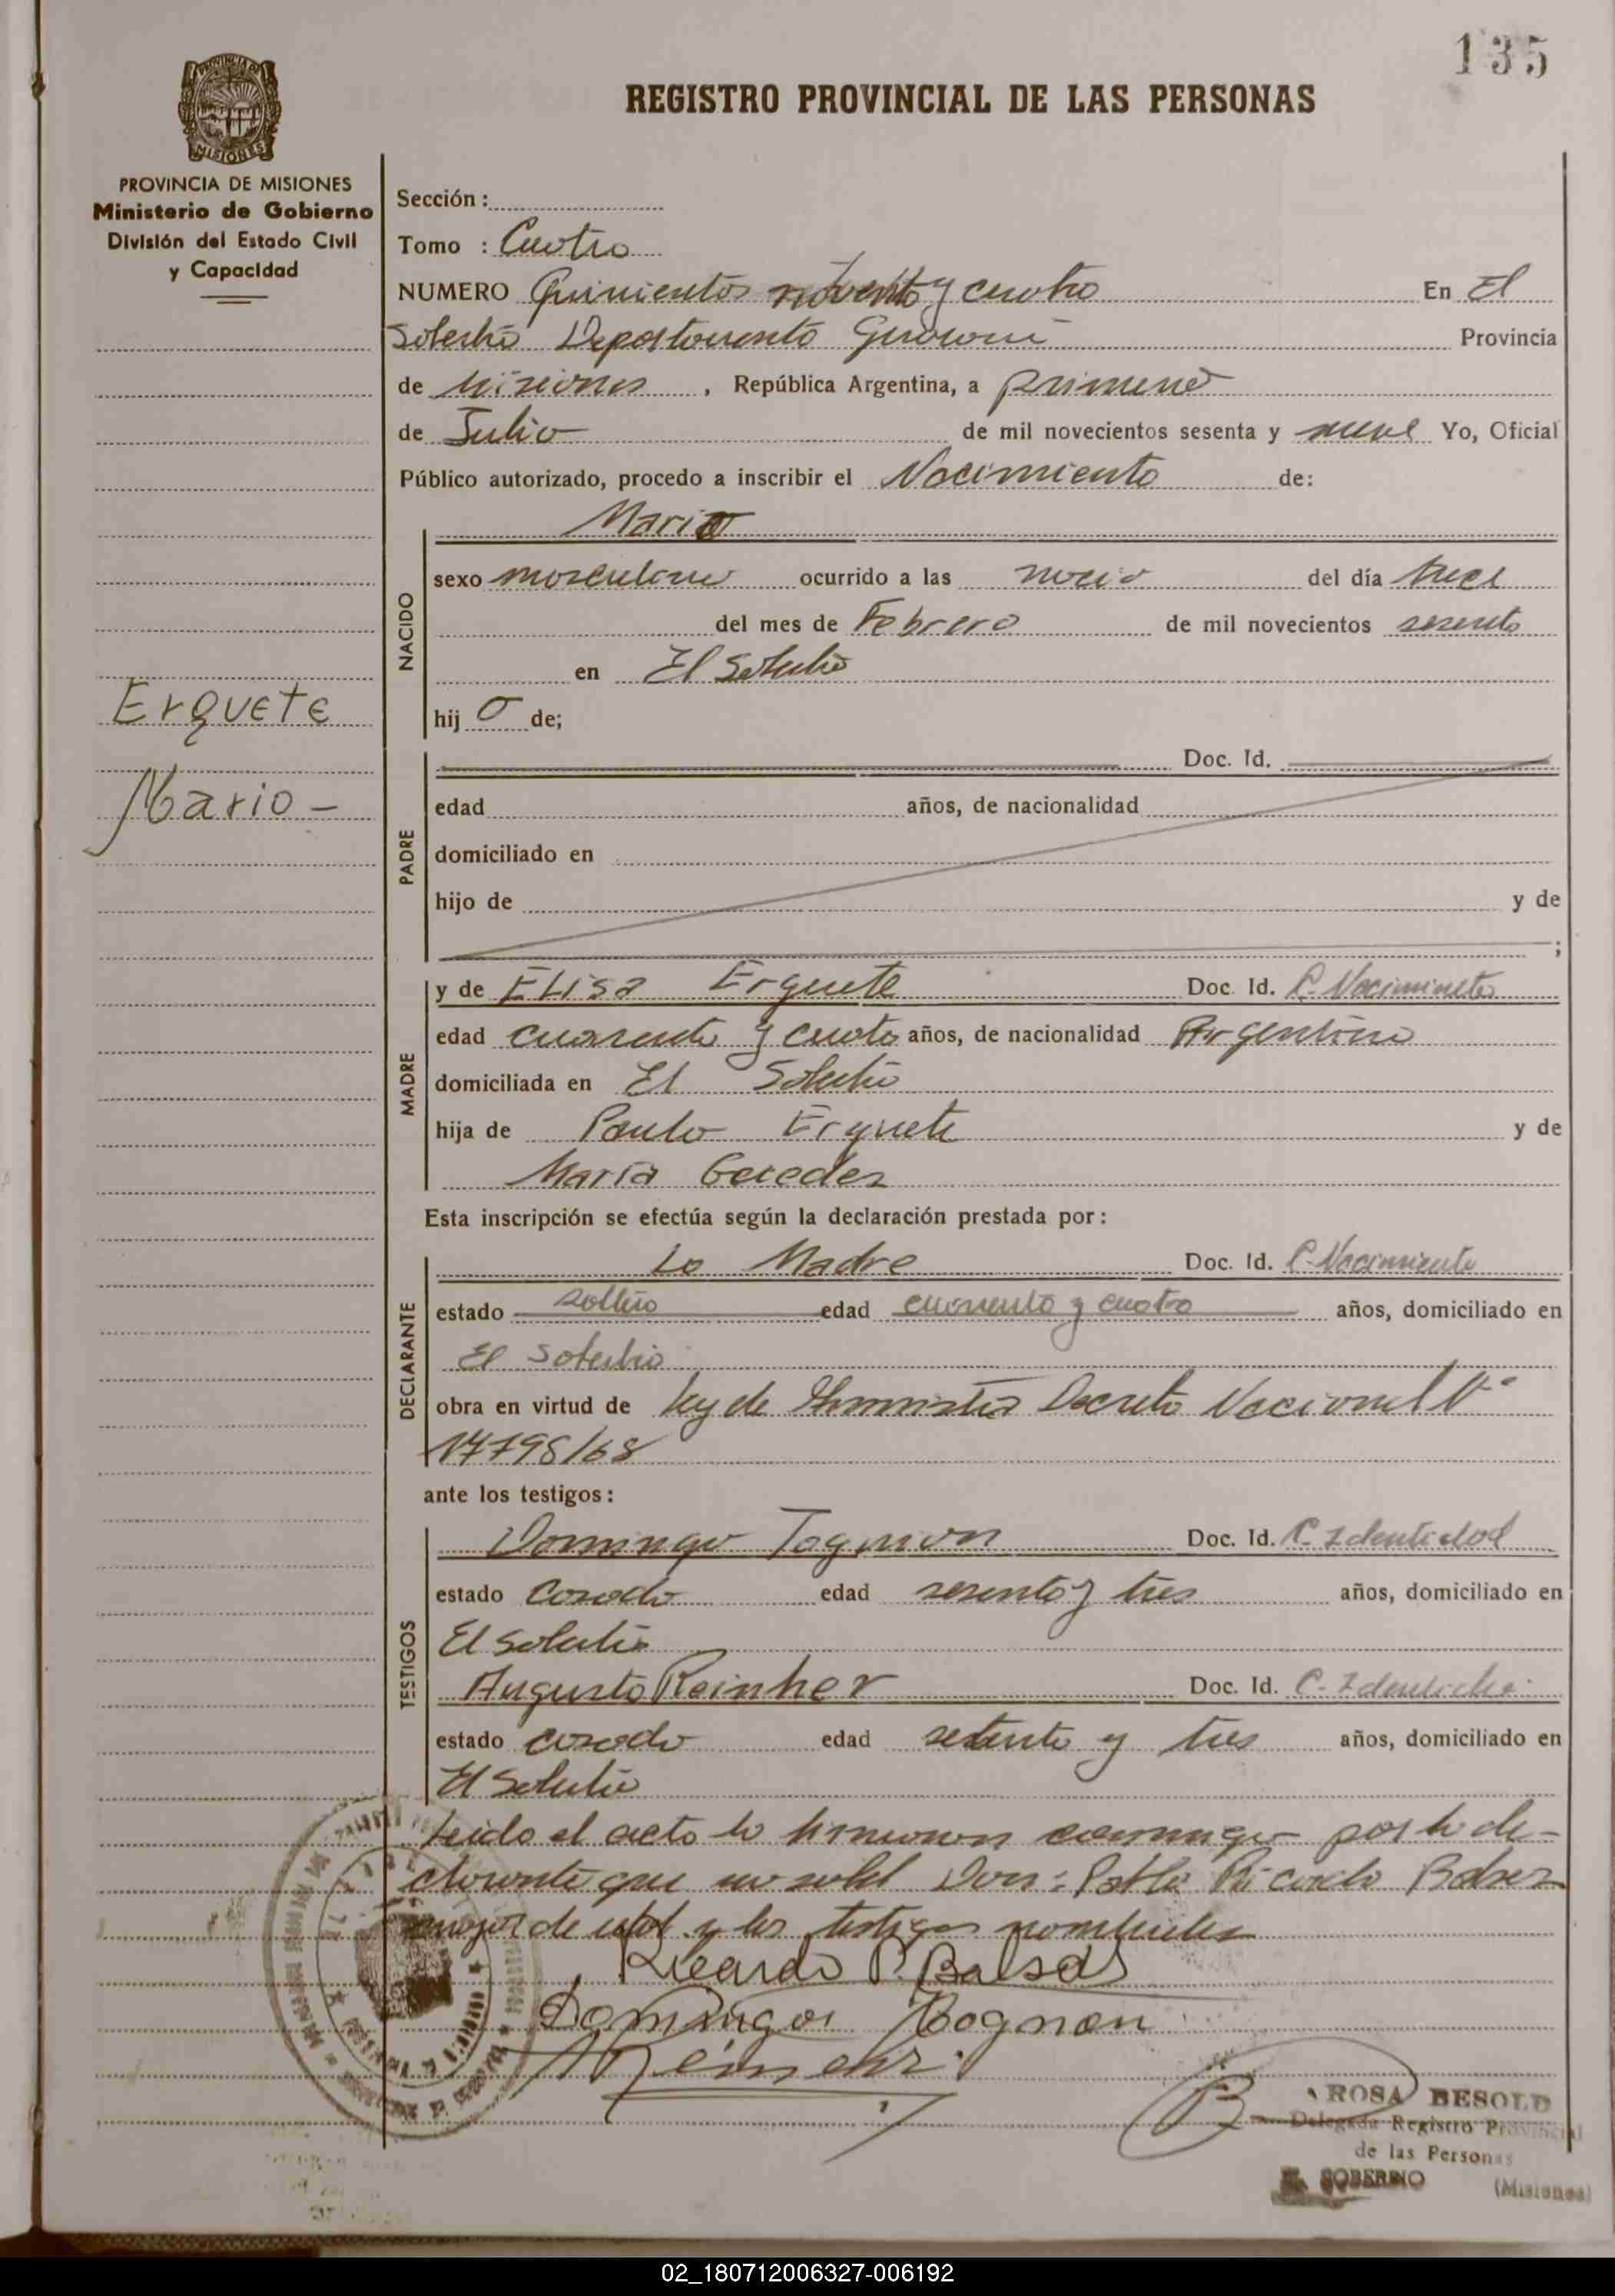 135
REGISTRO PROVINCIAL DE LAS PERSONAS
MISIONES
PROVINCIA DE MISIONES
Ministerio de Gobierno
División del Estado Civil
y Capacidad
Sección :
Tomo : Cuatro
NUMERO Quinientos noventa y cuatro En El
Soberbio Departamento Guaraní Provincia
de Misiones , República Argentina, a primero
de Julio de mil novecientos sesenta y nueve Yo, Oficial
Público autorizado, procedo a inscribir el Nacimiento de:
Mario
NACIDO
sexo masculino ocurrido a las del día trece
del mes de Febrero de mil novecientos sesenta
en El Soberbio
hij o de;
Erquete
Mario -
PADRE
Doc. Id.
edad años, de nacionalidad
domiciliado en
hijo de y de
;
MADRE
y de Elisa Erquete Doc. Id. P. Nacimineto
edad cuarenta y cuatro años, de nacionalidad Argentina
domiciliada en El Soberbio
hija de Paulo Erquete y de
María
Esta inscripción se efectúa según la declaración prestada por :
DECLARANTE
La Madre Doc. Id. P. Nacimiento
estado soltera edad cuarenta y cuatro años, domiciliado en
El Soberbio
obra en virtud de Ley de Decreto Nacional Nº
17798/68
ante los testigos :
TESTIGOS
Domingo Tognon Doc. Id. C. Identidad
estado casado edad sesenta y tres años, domiciliado en
El Soberbio
Augusto Reinher Doc. Id. C. Identidad
estado casado edad setenta y tres años, domiciliado en
El Soberbio
Leido el acta la firmaron conmigo por la de-
clarante que no sabe Don: Pablo Ricardo Balsas
mayor de edad y los testigos nombrados
Ricardo P. Balsas
Domingos Tognon
ROSA BESOLD
Delegada Registro Provincial
de las Personas
EL SOBERBIO (Misiones)
02_180712006327-006192